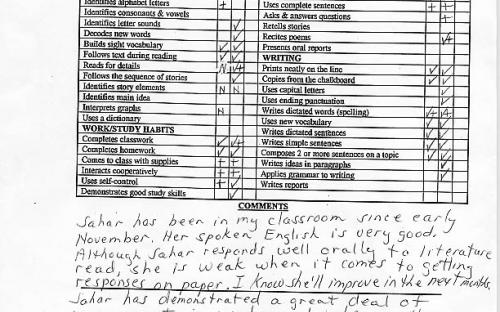 Identifies alphabet letters +
Identifies consonants & vowels
Identifies letter sounds ✓
Decodes new words ✓
Builds sight vocabulary ✓ ✓
Follows text during reading ✓ ✓
Reads for details N ✓+
Follows the sequence of stories ✓
Identifies story elements N N
Identifies main idea
Interprets graphs N
Uses a dictionary
WORK/STUDY HABITS
Completes classwork ✓ ✓+
Completes homework ✓ ✓
Comes to class with supplies + +
Interacts cooperatively + +
Uses self-control + ✓
Demonstrates good study skills ✓
Uses complete sentences + +
Asks & answers questions +
Retells stories
Recites poems ✓+
Presents oral reports
WRITING
Prints neatly on the line ✓ ✓
Copies from the chalkboard ✓ ✓
Uses capital letters ✓
Uses ending punctuation ✓
Writes dictated words (spelling)
Uses new vocabulary ✓
Writes dictated sentences ✓ ✓
Writes simple sentences ✓ ✓
Composes 2 or more sentences on a topic ✓ ✓
Writes ideas in paragraphs ✓
Applies grammar to writing ✓
Writes reports
COMMENTS
Sahar has been in my classroom since early
November. Her spoken English is very good.
Although Sahar responds well orally to literature
read, she is weak when it comes to getting
responses on paper. I know she'll improve in the next months.
Sahar has demonstrated a great deal of